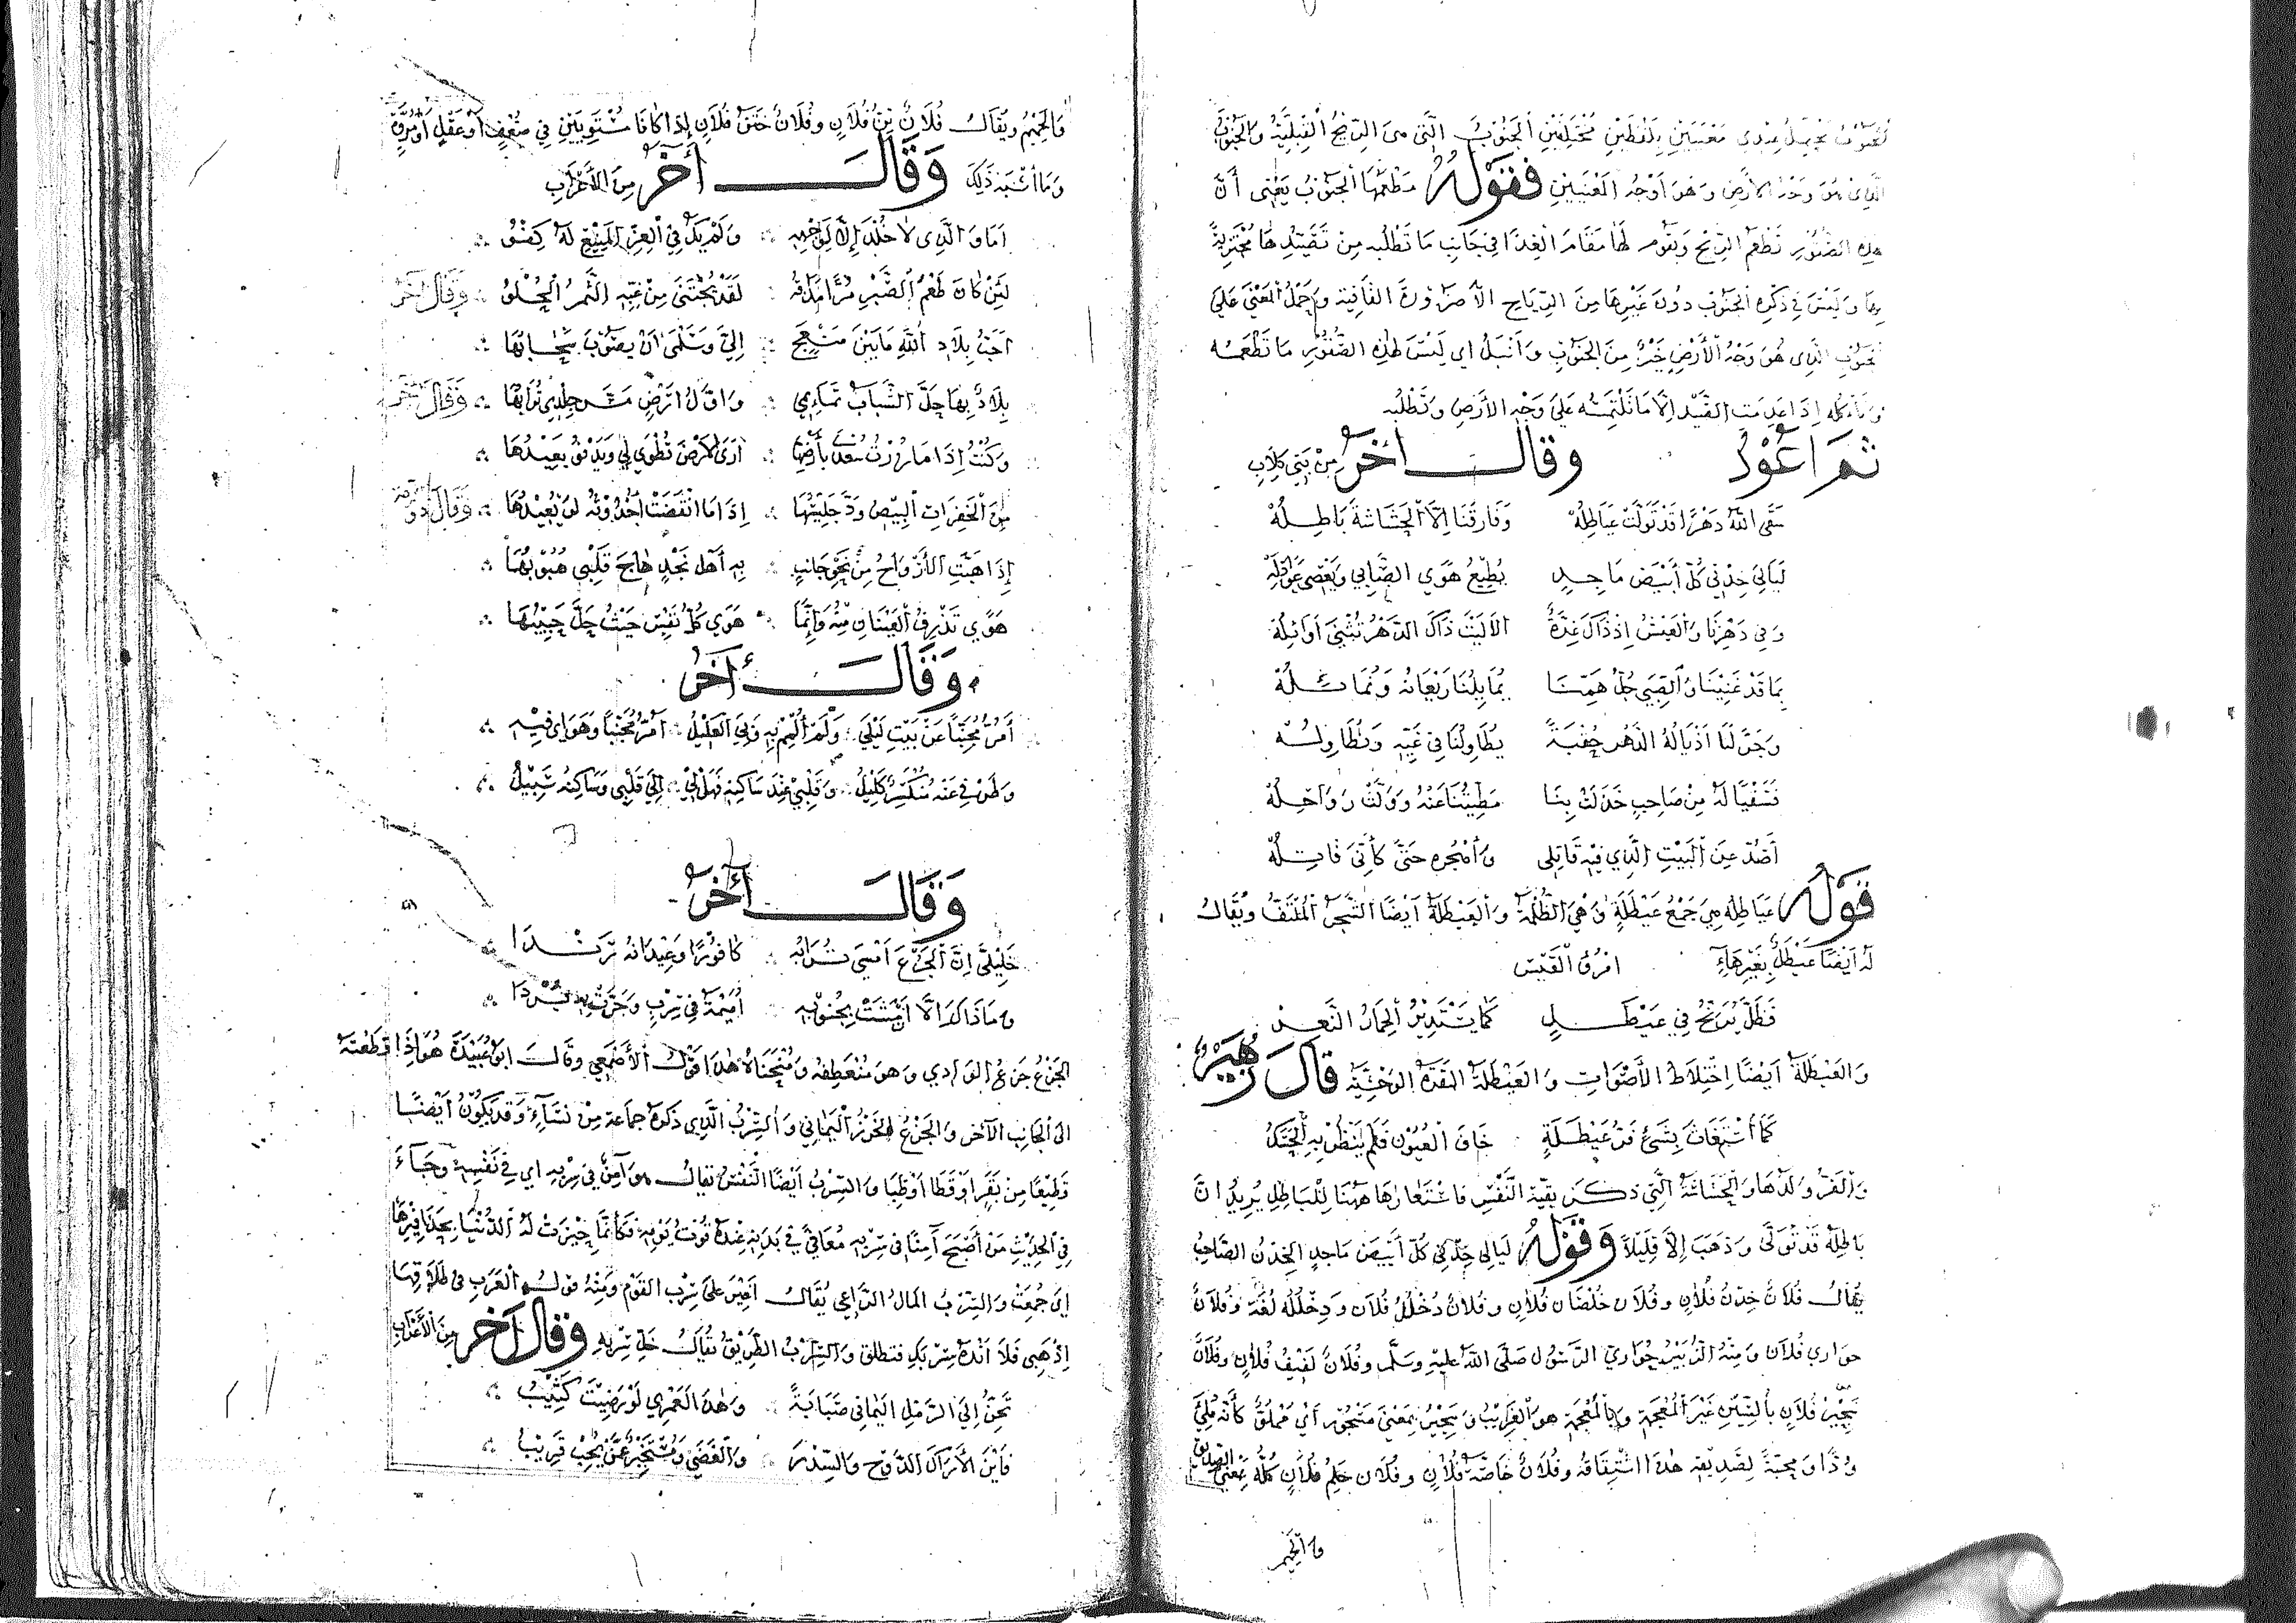 الجنوب تحتمل عندي معنيين بلفظين مختلفين الجنوب التي هي الريح القبلية والجنوب
الذي هو وجه الأرض وهو أوجه المعنيين فقوله مطعمها الجنوب يعني أن
هذه الصقور تطعم الريح ويقوم لها مقام الغذا في جانب ما تطلبه من تصيدها مجتزية
بها وليس في ذكره الجنوب دون غيرها من الرياح الا ضرورة القافية وحمل المعنى على
الجنوب الذي هو وجه الأرض خير من الجنوب وأنبل اي ليس لهذه الصقور ما تطعمه
وتأكله إذا عدمت الصيد إلا ما تلتمسه على وجه الأرض وتطلبه
ثم أعود وقال آخر من بني كلاب
سقى الله دهرًا قد تولت غياطله وفارقنا إلا الحشاشة باطله
ليالي خدني كل أبيض ماجد يطيع هوى الصابي ويعصي عواذله
وفي دهرنا والعيش إذ ذاك غرة الا ليت ذاك الدهر تثنى أوائله
بما قد غنينا والصبى جل همنا يمايلنا ريعانه ونمائله
وجر لنا أذياله الدهر حقبة يطاولنا في غيه ونطاوله
فسقيا له من صاحب خذلت بنا مطيتنا عنه وولت رواحله
أصد عن البيت الذي فيه قاتلي وأهجره حتى كأني قاتله
قوله غياطله هي جمع غيطلة وهي الظلمة والغيطلة أيضًا الشجر الملتف ويقال
له أيضًا غيطل بغير هاء امرؤ القيس
فظل يرنح في غيطل كما يستدير الحمار النعر
والغيطلة أيضًا اختلاط الأصوات والغيطلة البقرة الوحشية قال زهير
كما أستغاث بشيء فز غيطلة خاف العيون فلم ينظر به الحشك
والفز ولدها والحشاشة التي ذكر بقية النفس فاستعارها ههنا للباطل يريد ان
باطله قد تولى وذهب إلا قليلاً وقوله ليالي خدني كل أبيض ماجد الخدن الصاحب
يقال فلان خدن فلان وفلان خلصان فلان وفلان دخلل فلان ودخلله لغة وفلان
حواري فلان ومنه الزبير حواري الرسول صلى الله عليه وسلم وفلان لفيف فلان وفلان
سجير فلان بالسين غير المعجمة وبالمعجمة هو الغريب وسجير بمعنى مسجور أي مملو كأنه ملئ
ودًا ومحبة لصديقه هذا اشتقاقه وفلان خاصة فلان وفلان حلم فلان كله بمعنى الصديق
والحميم
والحميم ويقال فلان تن فلان وفلان حتن فلان إذا كانا مستويين في ضعف أو عقل أو مروة
وما أشبه ذلك وقال آخر من الأعراب
اما والذي لا خلد إلا لوجهه ولم يك في العز المنيع له كفو
لئن كان طعم الصبر مرا مذاقه لقد يجتنى من غبه الثمر الحلو وقال آخر
أحب بلاد الله ما بين منعج إلي وسلمى ان يصوب سحابها
بلاد بها حل الشباب تمائمي واول ارض مس جلدي ترابها وقال آخر
وكنت إذا ما زرت سعدى بأرضها أرى الأرض تطوى لي ويدنو بعيدها
من الخفرات البيض ود جليسها إذا ما انقضت أحدوثة لو يعيدها وقال ذو الرمة
إذا هبت الأرواح من نحو جانب به أهل نجد هاج قلبي هبوبها
هوى تذرف العينان منه وإنما هوى كل نفس حيث حل حبيبها
وقال آخر
أمر مجنبا عن بيت ليلى ولم ألمم به وبي الغليل أمر مجنبا وهواي فيه
وطرفي عنه منكسر كليل وقلبي عند ساكنه فهل لي إلى قلبي وساكنه سبيل
وقال آخر
خليلي إن الجزع أمسى ترابه كافورًا وعيدانه رندا
وما ذاك إلا أن مشت بجنوبه أميمة في سرب وجرت به بردا
الجزع جزع الوادي وهو منعطفه ومنحناه هذا قول الأصمعي وقال ابو عبيدة هو إذا قطعته
الى الجانب الآخر والجزع الخرز اليماني والسرب الذي ذكره جماعة من نساء وقد يكون أيضًا
قطيعًا من بقر او قطا أو ظبا والسرب أيضًا النفس يقال هو آمن في سربه اي في نفسه وجاء
في الحديث من أصبح آمنا في سربه معافى في بدنه عنده قوت يومه فكأنما حيزت له الدنيا بحذافيرها
اي جمعت والسرب المال الراعي يقال أغير على سرب القوم ومنه قول العرب في طلاقها
اذهبي فلا أنده سربك فتطلق والسرب الطريق يقال خل سربه وقال آخر من الأعراب
تحن إلى الرمل اليماني صبابة وهذا لعمري لو رضيت كثيب
فأين الأراك الدوح والسدر والغضى ومستخبر عمن يحب قريب